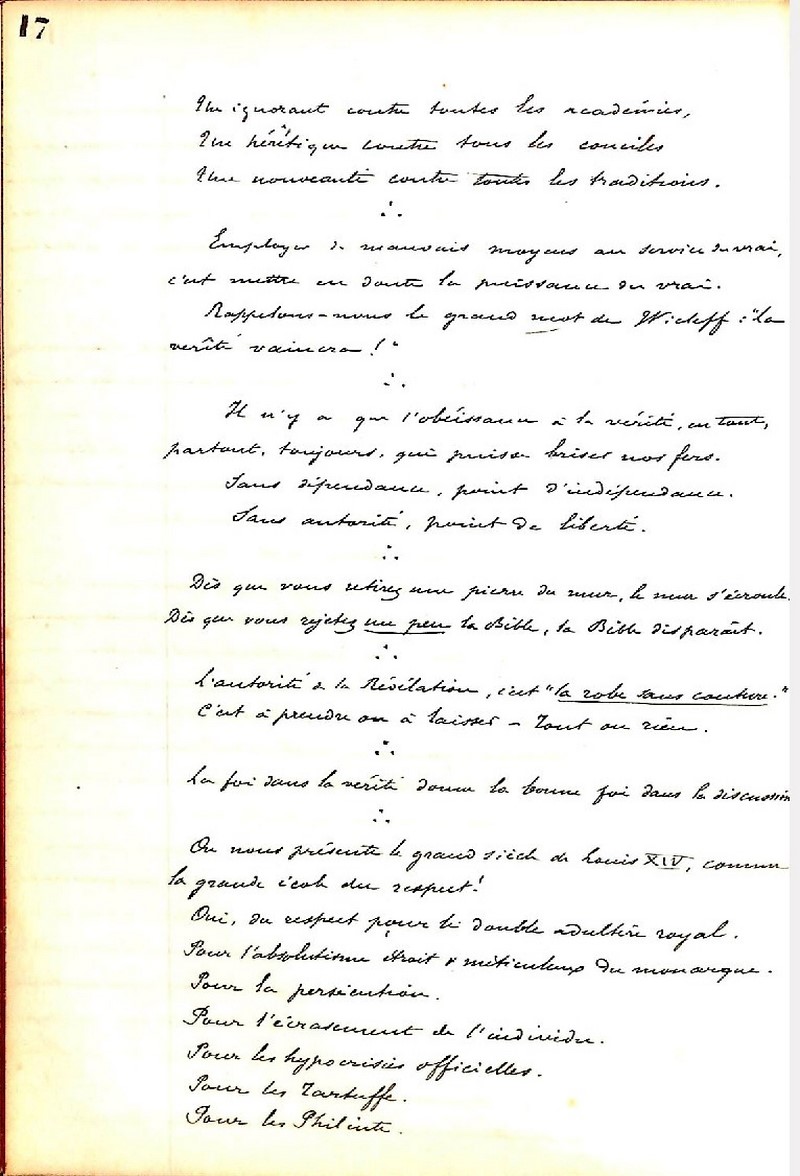 17
Un ignorant contre toutes les académies,
Un hérétique contre tous les conciles
Une nouveauté contre toutes les traditions.
∴
Employer de mauvais moyens au service du vrai,
c'est mettre en doute la puissance du vrai.
Rappelons-nous le grand mot de Wicleff : "la
vérité vaincra !"
∴
Il n'y a que l'obéissance à la vérité, en tout,
partout, toujours, qui puisse briser nos fers.
Sans dépendance, point d'indépendance.
Sans autorité, point de liberté.
∴
Dès que vous retirez une pierre du mur, le mur s'écroule.
Dès que vous rejetez un peu la Bible, la Bible disparaît.
∴
L'autorité de la Révélation, c'est "la robe sans couture."
C'est à prendre ou à laisser – Tout ou rien.
∴
La foi dans la vérité donne la bonne foi dans la discussion
∴
On nous présente le grand siècle de Louis XIV, comme
la grande école du respect !
Oui, du respect pour le double adultère royal.
Pour l'absolutisme étroit & méticuleux du monarque.
Pour la persécution.
Pour l'écrasement de l'individu.
Pour les hypocrisies officielles.
Pour les Tartuffe.
Pour les Philinte.